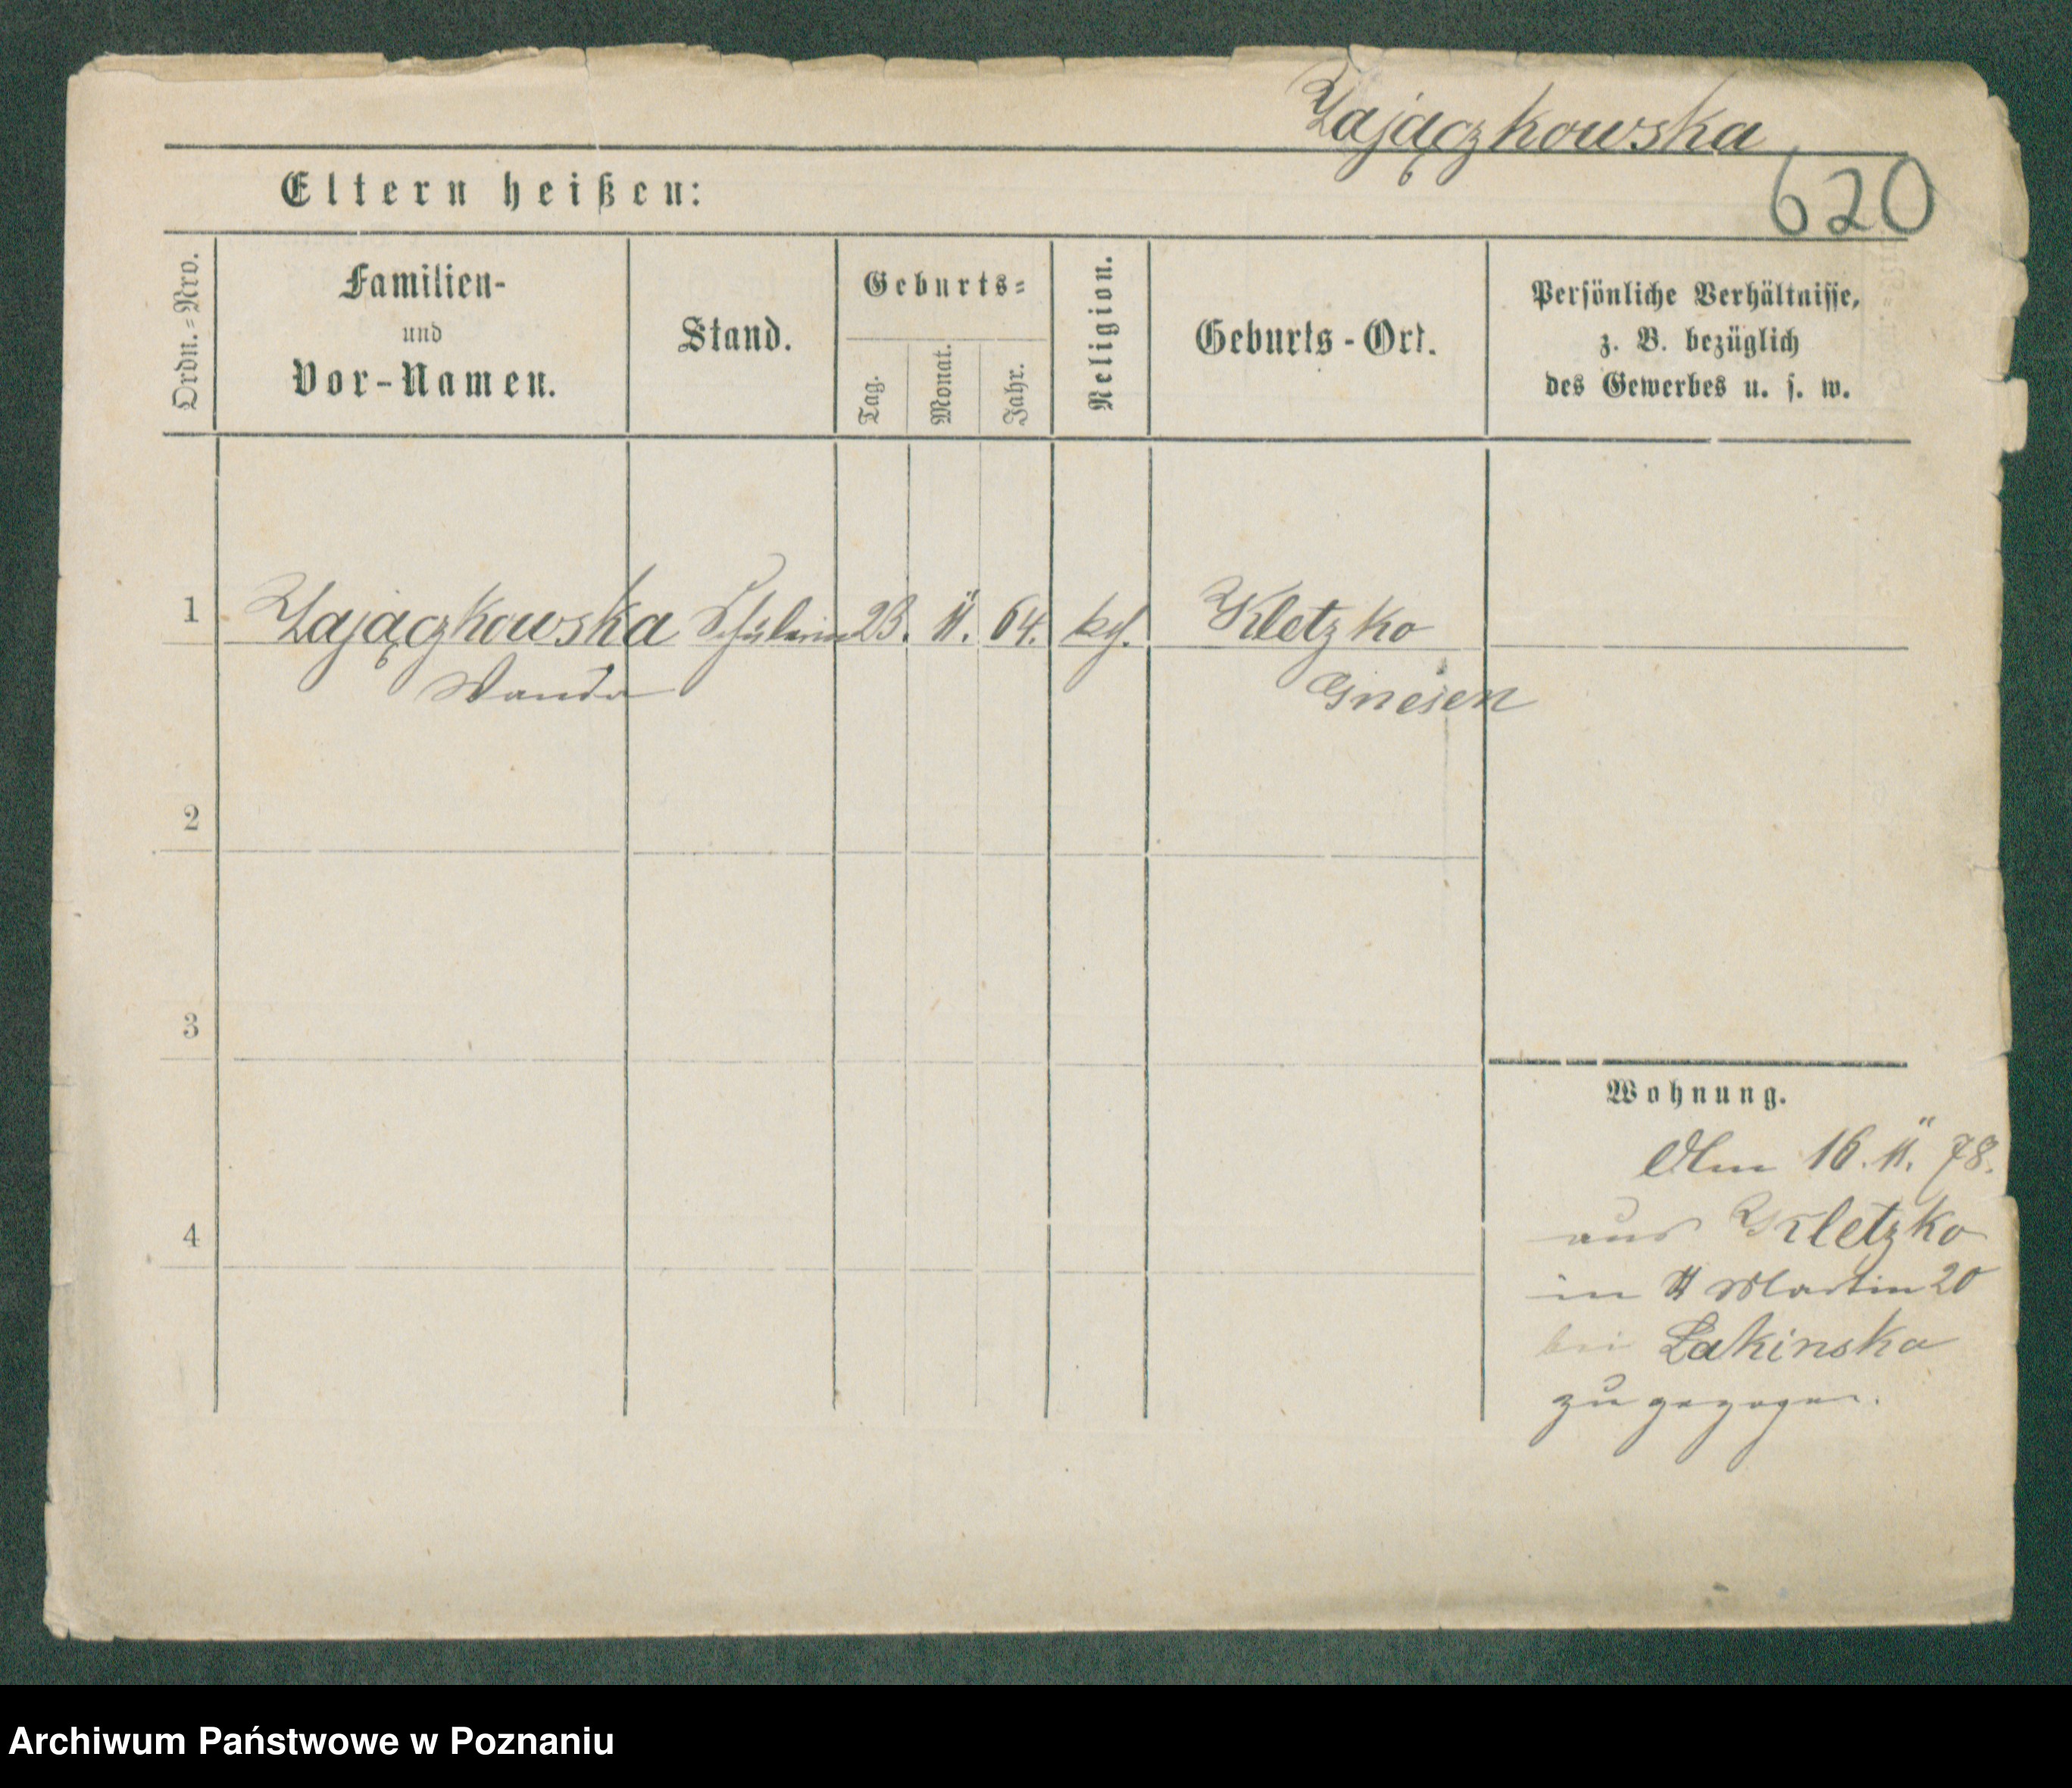 Zajączkowska
620
Eltern heißen:
Ordn.=Nro.
Familien-
und
Vor-Namen.
Stand.
Geburts=
Tag.
Monat.
Jahr.
Religion.
Geburts-Ort.
Persönliche Verhältnisse,
z. B. bezüglich
des Gewerbes u. s. w.
1 Zajączkowska Schülerin 23. 11. 64. kath. Kletzko
Wanda Gnesen
2
3
Wohnung.
Am 16. 11. 78.
aus Kletzko
4
in St Martin 20
bei Łakinska
zugezogen.
Archiwum Państwowe w Poznaniu